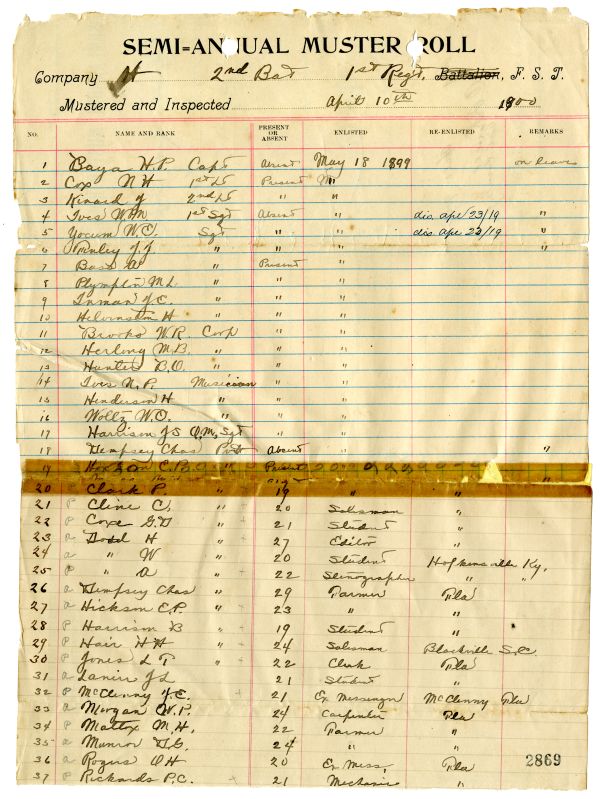 SEMI=ANNUAL MUSTER ROLL
Company H 2nd Bat 1st Regt. Battalion, F. S. T.
Mustered and Inspected April 10th 1900
NO. NAME AND RANK PRESENT OR ABSENT ENLISTED RE-ENLISTED REMARKS
1 Baya H.P. Capt Absent May 18 1899 on leave
2 Cox N H 1st Lt Present " "
3 Kinard J 2nd Lt " " "
4 Ives W.M 1st Sgt Absent " dis. apr 23/19 "
5 Yocum W.C. Sgt " " dis. apr 23/19 "
6 J.J. " " " "
7 Bass A " Present "
8 Plympton M L " " "
9 Inman J.C. " " "
10 Helvenston H " " "
11 Brooks W.R. Corp " "
12 Herlong M.B. " " "
13 Hunter B.O. " " "
14 Ives N.P. Musician " "
15 Henderson H " " "
16 Woltz W.O. " " "
17 Harrison J S Q.M. Sgt " "
18 Dempsey Chas Pvt Absent "
19 C.P. " Present
20 Clark P. " 19 " "
21 P Cline C. " 20 Salesman "
22 P Cope G.D " 21 Student "
23 a Dodd H " 27 Editor "
24 a " W " 20 Student Hopkinsville Ky.
25 P " A " 22 Stenographer " "
26 a Dempsey Chas " 29 Farmer Fla
27 a Hickson C.P. " 23 " "
28 P Harrison B " 19 Student "
29 P Hair H H " 24 Salesman Blackville S.C.
30 P Jones L T " 22 Clerk Fla
31 a Lanier J L 21 Student "
32 P McClenny J.E. " 21 Ex Messenger McClenny Fla
33 a Morgan W.P. " 24 Carpenter Fla
34 P Mattox M.H. " 22 Farmer "
35 a Munroe D.G. " 24 " "
36 a Rogers O H " 20 Ex Mess, Fla
37 P Rickards P.C. " 21 Mechanic "
2869